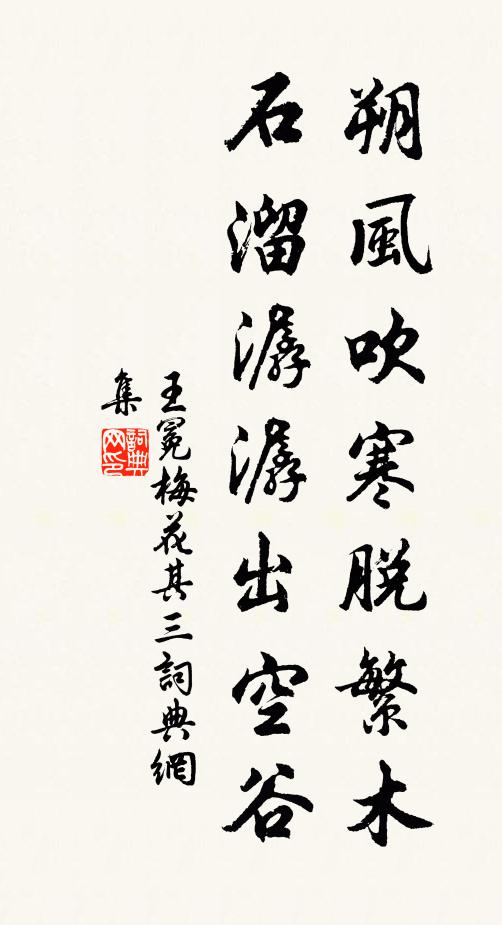 朔風吹寒脱繁木
石溜潺潺出空谷
王冕梅花其三詞典網
集
詞典
网印